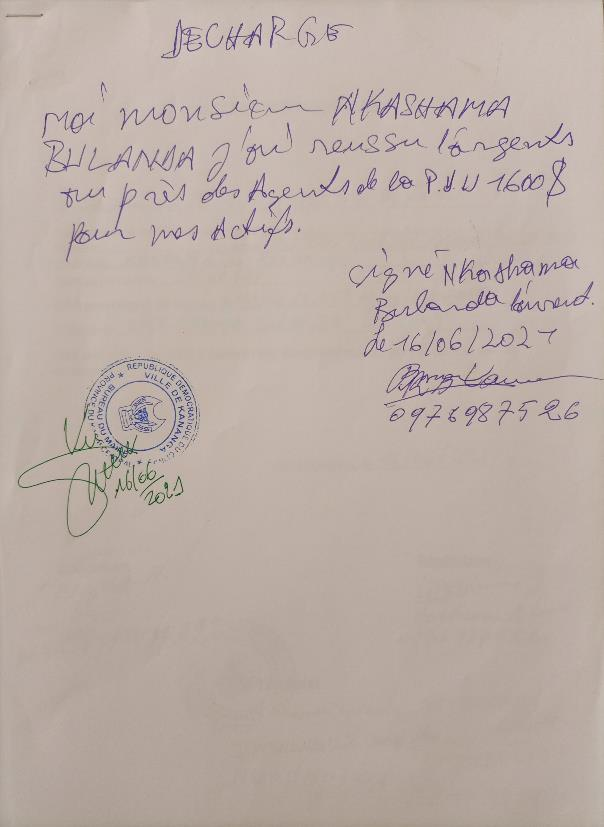 DECHARGE
Moi monsieur NKASHAMA
BULANDA j'ai reussu l'argents
au près des Agents de la P.V.V 1600$
pour mes Actifs.
Signé Nkashama
Bulanda
le 16/06/2021
0976987526
REPUBLIQUE DEMOCRATIQUE DU CONGO
VILLE DE KANANGA
BUREAU DU
PROVINCE DU
Vu
16/06
2021